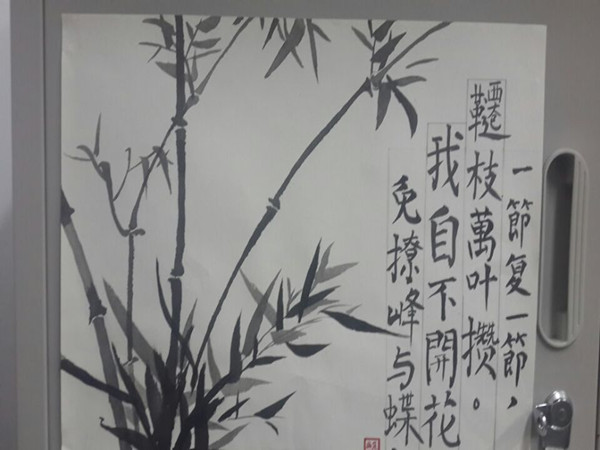 一節复一節，
韆枝萬叶攒。
我自不開花
免撩峰与蝶